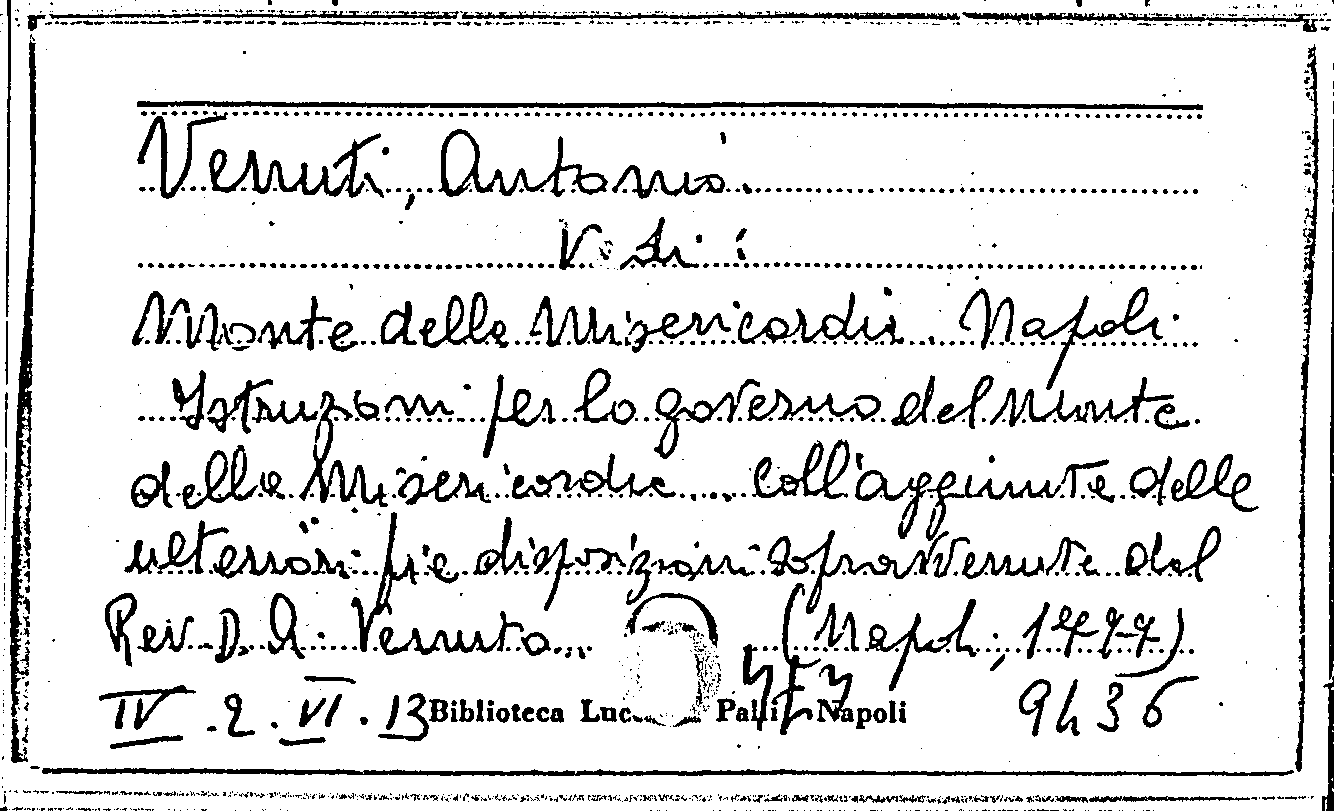 Venuti, Antonio.
Vedi:
Monte della Misericordia. Napoli.
Istruzioni per lo governo del Monte
della Misericordia .... coll'aggiunta delle
ulteriori pie disposizioni sopravvenute dal
Rev. D. A. Venuto...  (Napoli, 1777)
IV . 2 . VI . 13 Biblioteca Palli - Napoli 9436